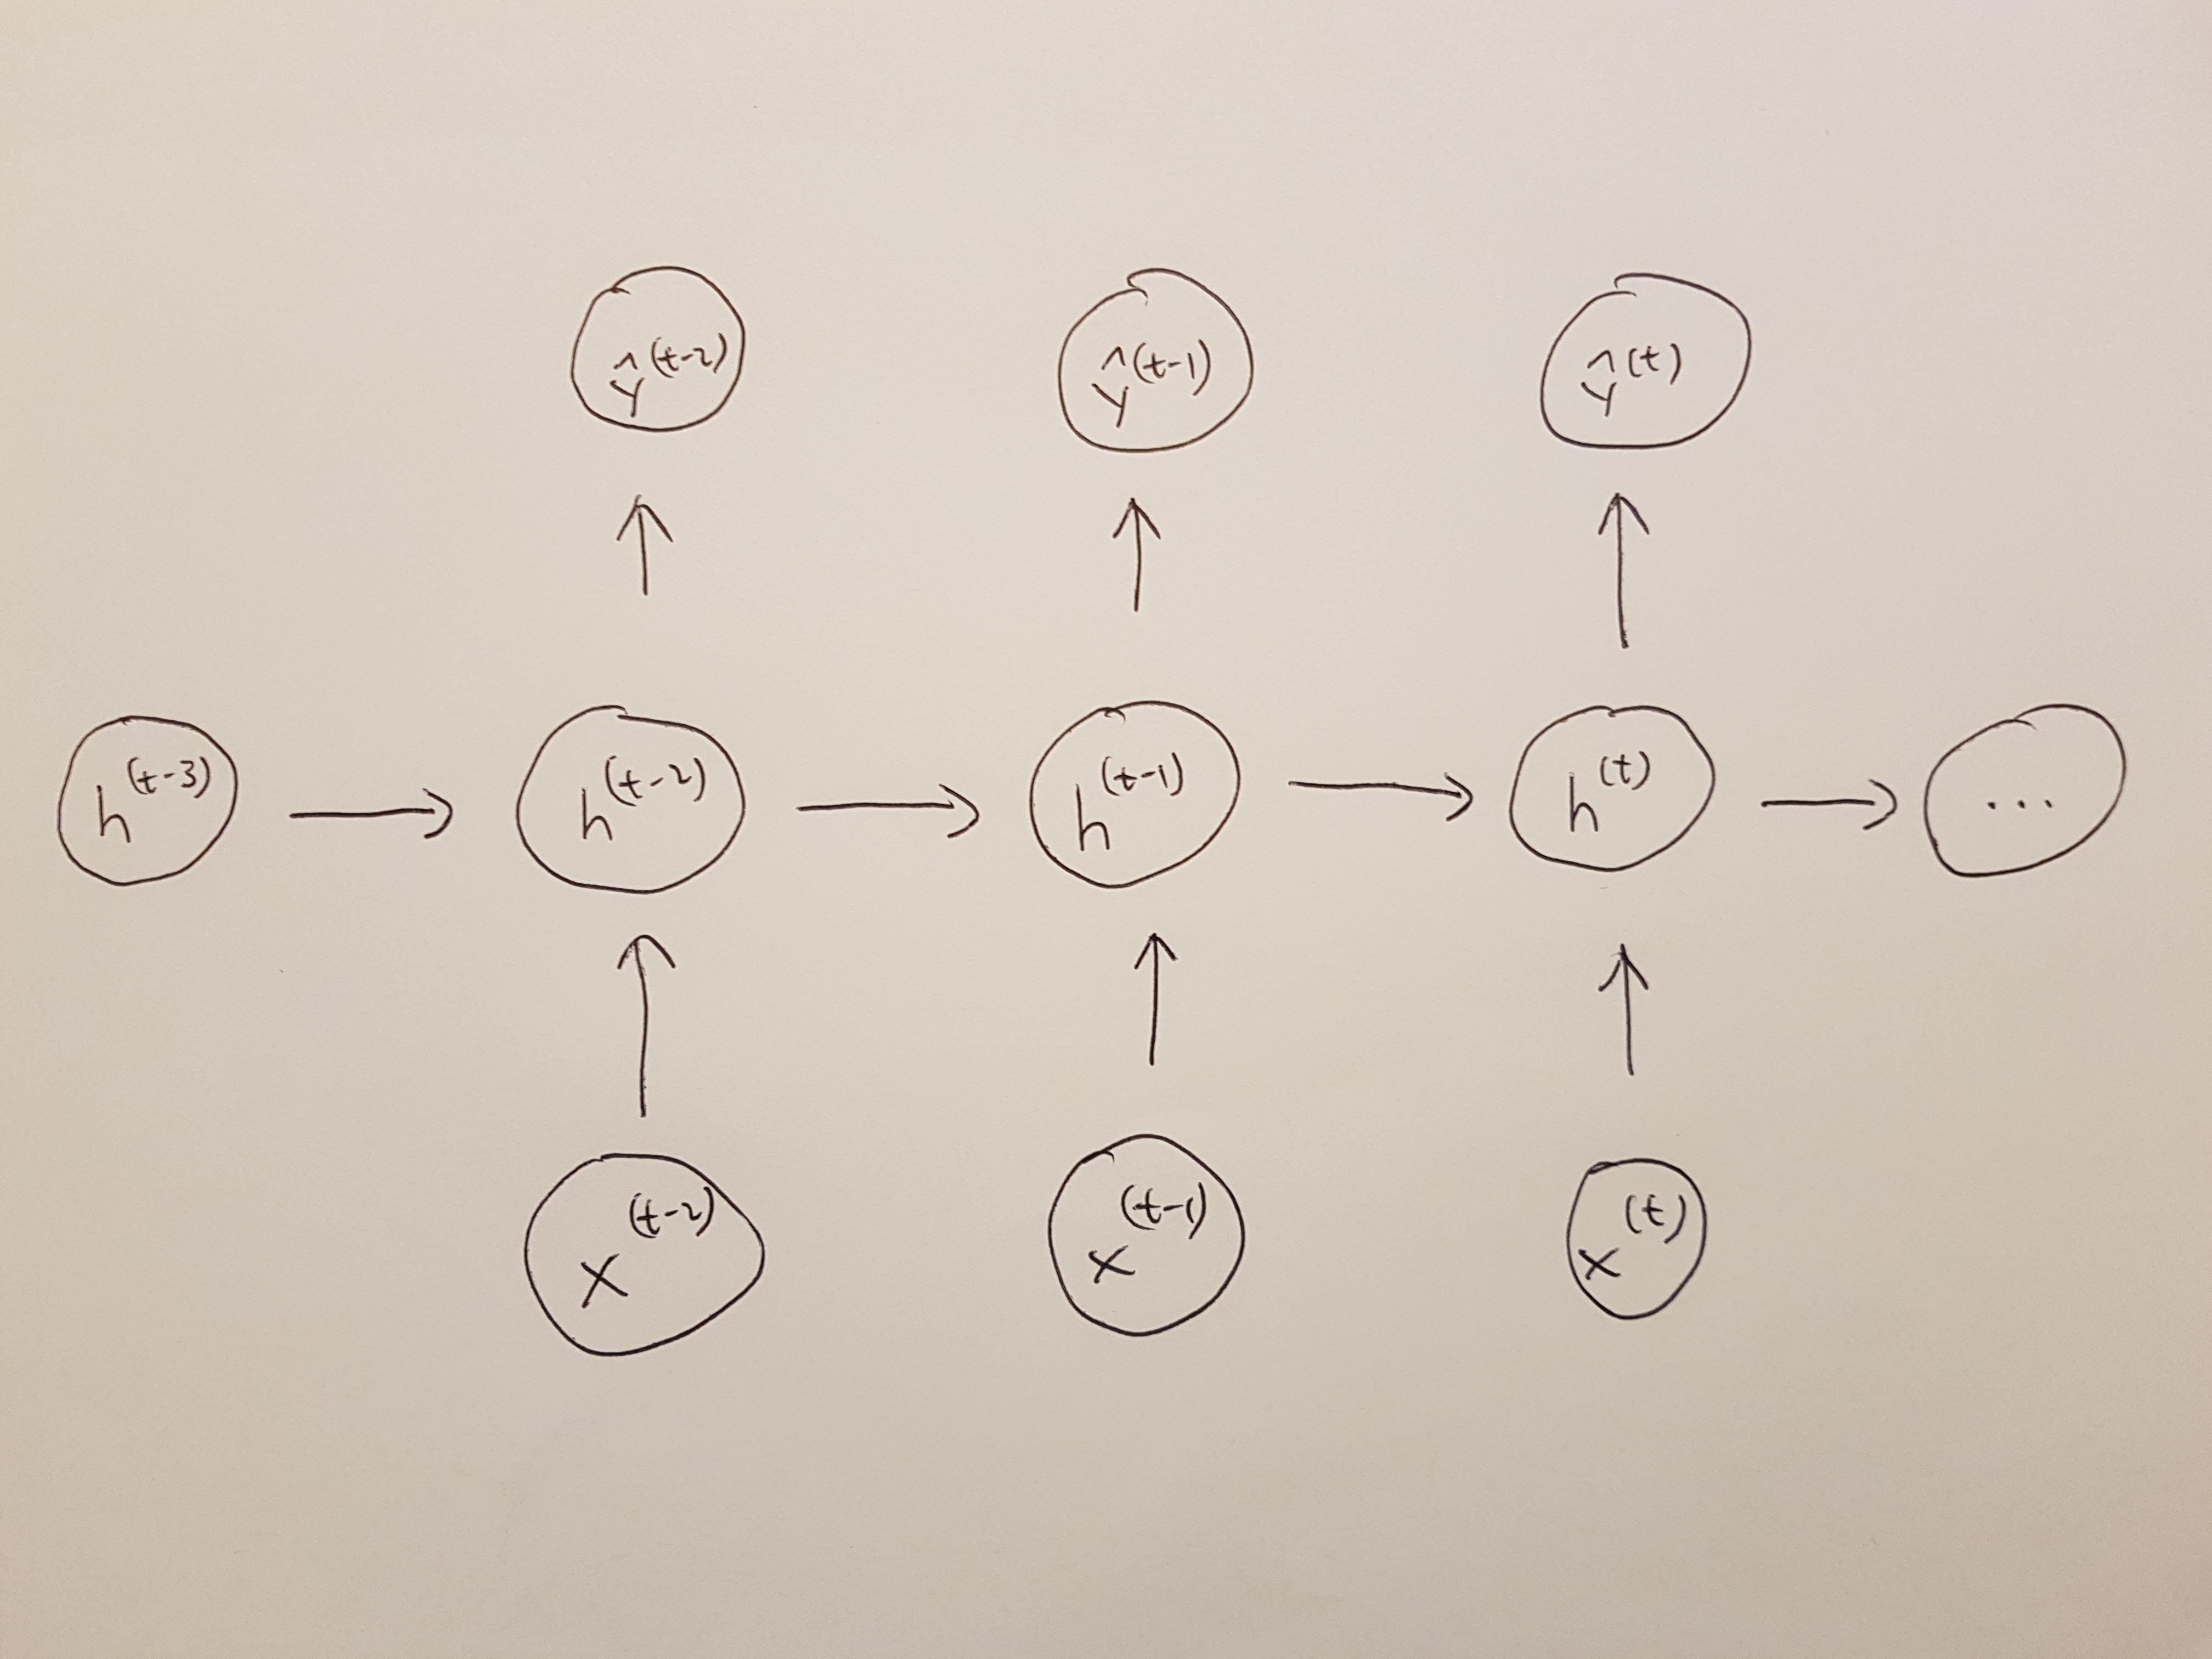 ŷ^(t-2) ŷ^(t-1) ŷ^(t)
h^(t-3) h^(t-2) h^(t-1) h^(t) ...
x^(t-2) x^(t-1) x^(t)